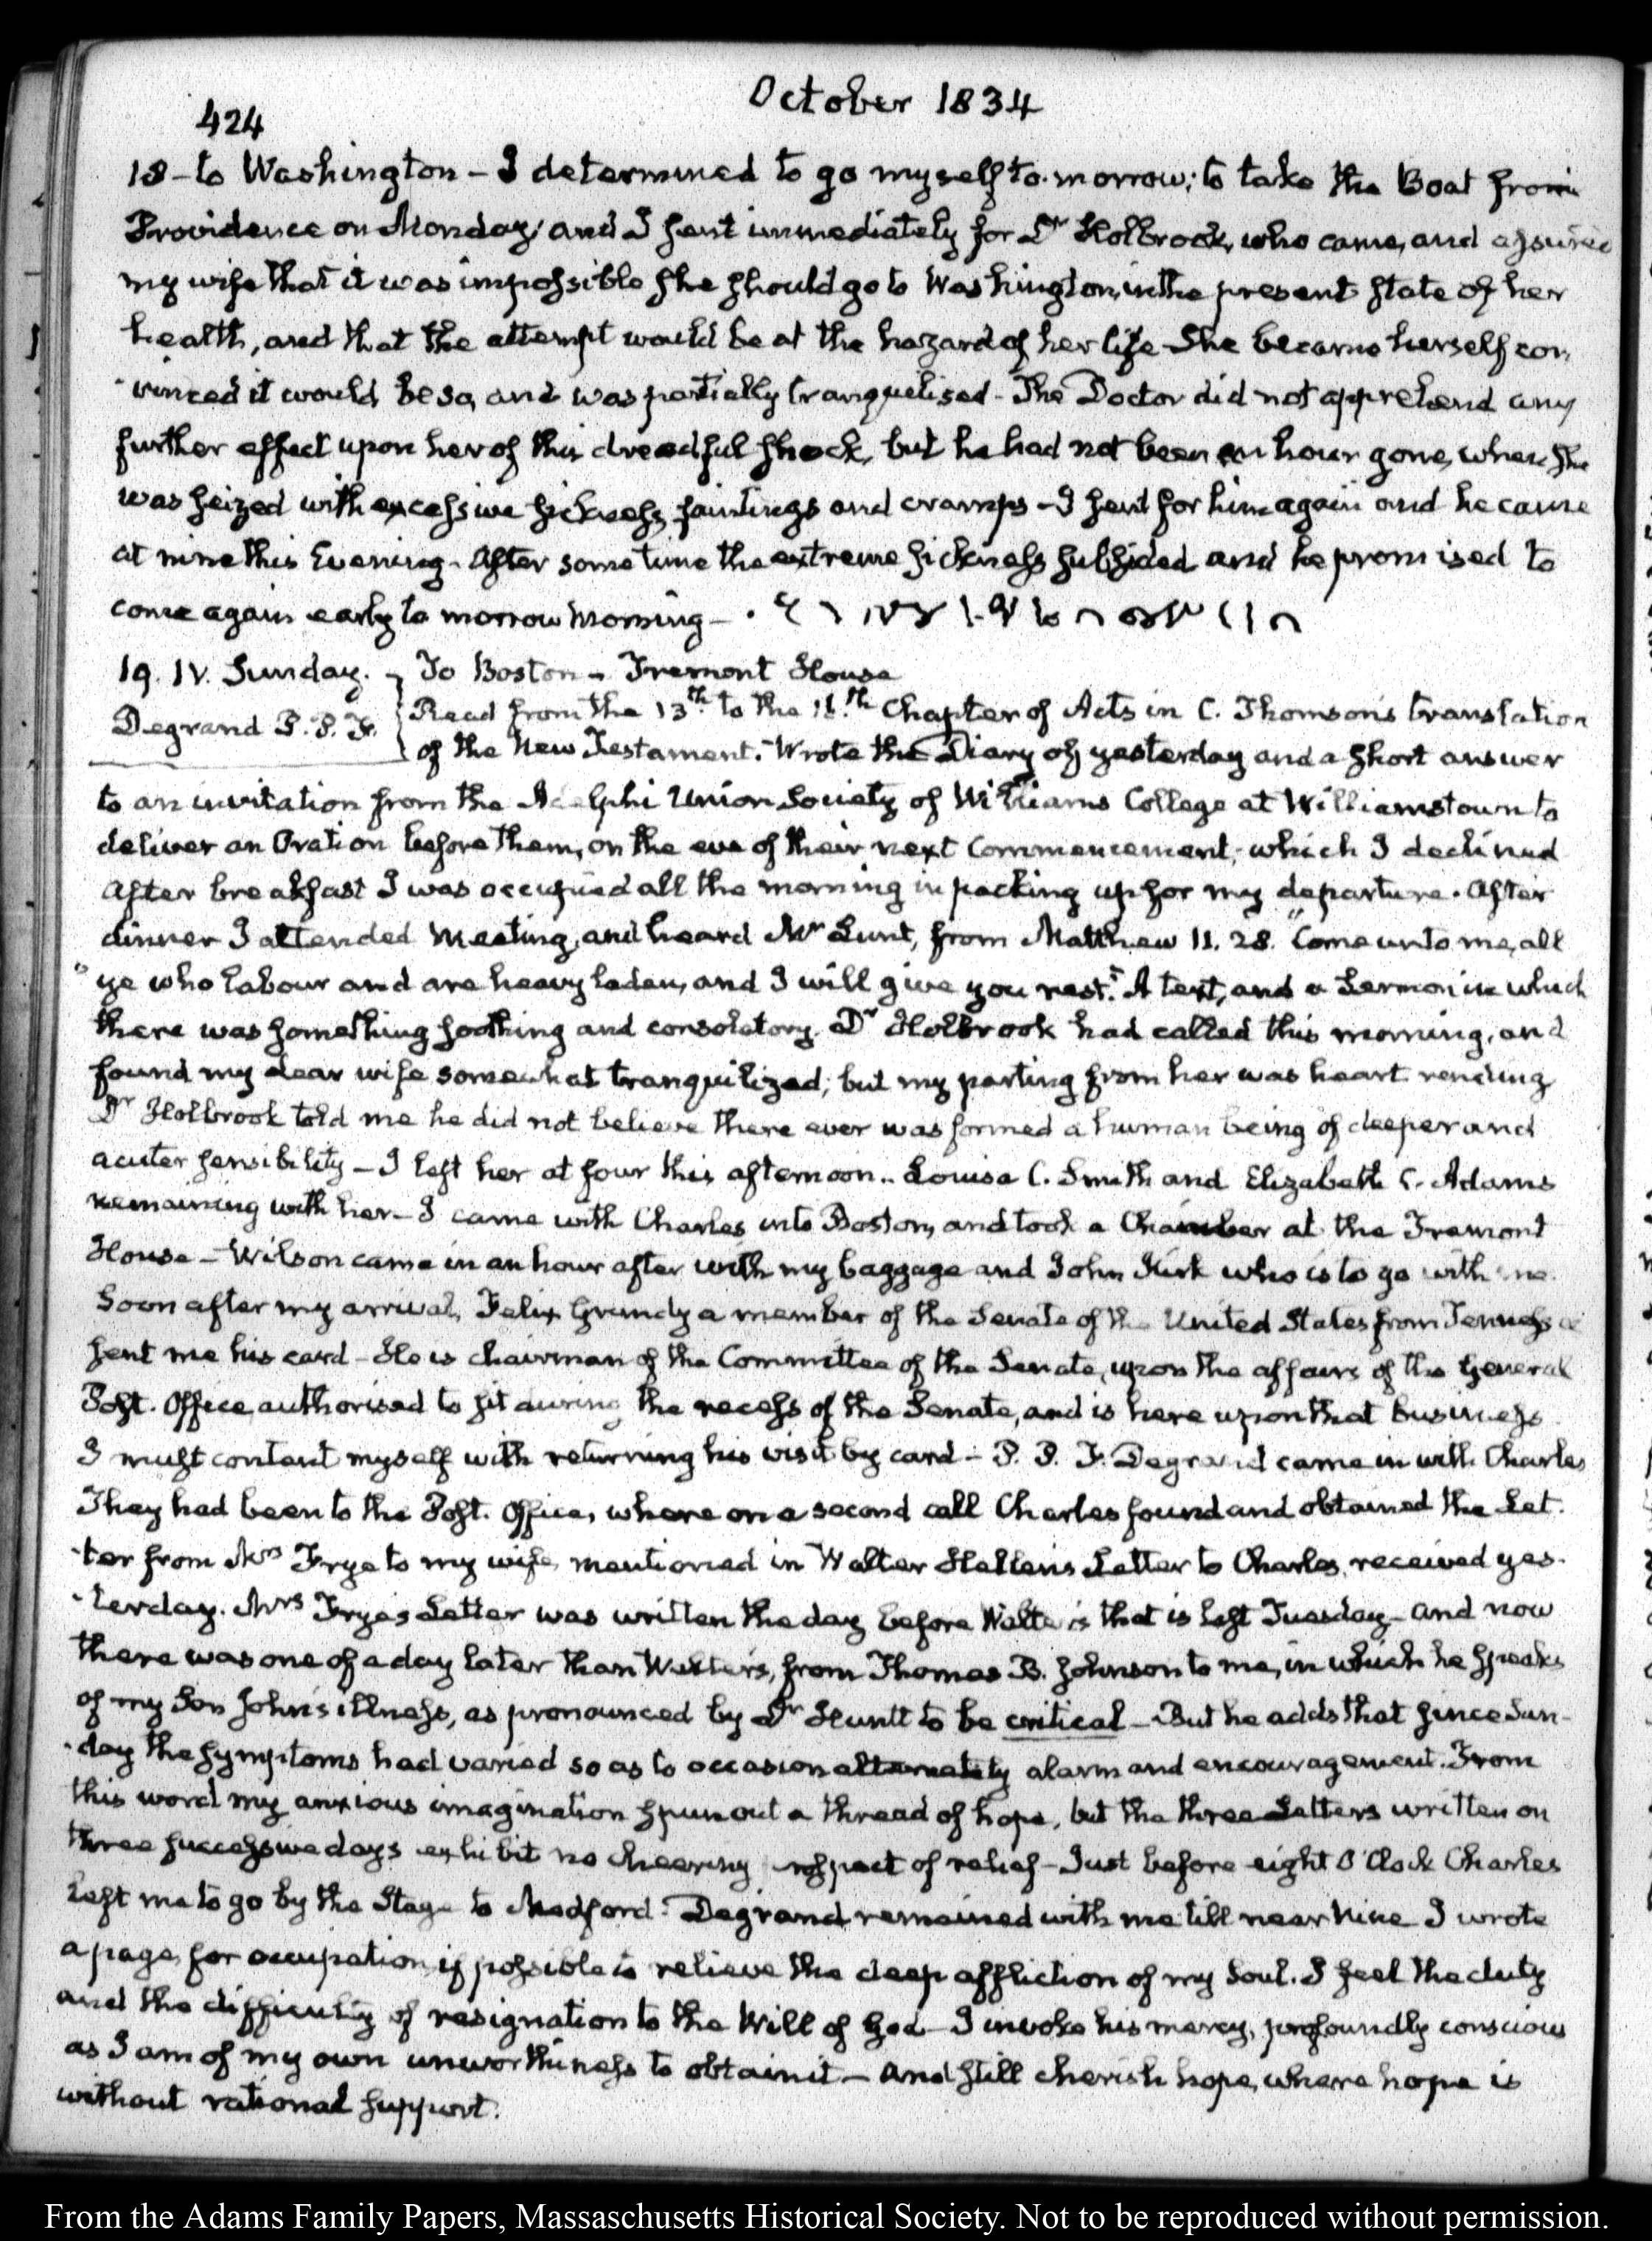 October 1834
424
18 - to Washington - I determined to go myself to-morrow; to take the Boat from
Providence on Monday; and I sent immediately for Dr Holbrook, who came, and assured
my wife that it was impossible she should go to Washington, in the present state of her
health, and that the attempt would be at the hazard of her life - She became herself con-
-vinced it would be so, and was partially tranquilised - The Doctor did not apprehend any
further effect upon her of this dreadful shock, but he had not been an hour gone, when she
was seized with excessive sickness, faintings and cramps - I sent for him again and he came
at nine this Evening. After some time the extreme sickness subsided and he promised to
come again early to morrow Morning -
19. IV. Sunday. To Boston - Tremont House
Degrand P. P. F. Read from the 13th to the 16th Chapter of Acts in C. Thomson's translation
of the New Testament. Wrote the Diary of yesterday and a short answer
to an invitation from the Adelphi Union Society of Williams College at Williamstown to
deliver an Oration before them, on the eve of their next Commencement, which I declined
After breakfast I was occupied all the morning in packing up for my departure. After
dinner I attended Meeting, and heard Mr Lunt, from Matthew 11. 28. "Come unto me, all
"ye who labour and are heavy laden, and I will give you rest." A text, and a Sermon in which
there was something soothing and consolatory. Dr Holbrook had called this morning, and
found my dear wife somewhat tranquilized; but my parting from her was heart rending
Dr Holbrook told me he did not believe there ever was formed a human being of deeper and
acuter sensibility - I left her at four this afternoon.. Louisa C. Smith and Elizabeth C. Adams
remaining with her - I came with Charles into Boston, and took a Chamber at the Tremont
House - Wilson came in an hour after with my baggage and John Kirk who is to go with me.
Soon after my arrival, Felix Grundy a member of the Senate of the United States from Tennessee
sent me his card - He is chairman of the Committee of the Senate, upon the affairs of the General
Post. Office authorised to sit during the recess of the Senate, and is here upon that business
I must content myself with returning his visit by card - P. P. F. Degrand came in with Charles
They had been to the Post. Office, where on a second call Charles found and obtained the Let-
-ter from Mrs Frye to my wife, mentioned in Walter Hellen's Letter to Charles, received yes-
-terday. Mrs Frye's Letter was written the day before Walter's that is last Tuesday - and now
there was one of a day later than Walter's, from Thomas B. Johnson to me, in which he speaks
of my Son John's illness, as pronounced by Dr Huntt to be critical - But he adds that since Sun-
-day the symptoms had varied so as to occasion alternately alarm and encouragement. From
this word my anxious imagination spun out a thread of hope, but the three Letters written on
three successive days exhibit no cheering prospect of relief - Just before eight O'Clock Charles
left me to go by the Stage to Medford. Degrand remained with me till near Nine I wrote
a page for occupation if possible to relieve the deep affliction of my Soul. I feel the duty
and the difficulty of resignation to the Will of God - I invoke his mercy, profoundly conscious
as I am of my own unworthiness to obtain it - and still cherish hope, where hope is
without rational support.
From the Adams Family Papers, Massaschusetts Historical Society. Not to be reproduced without permission.